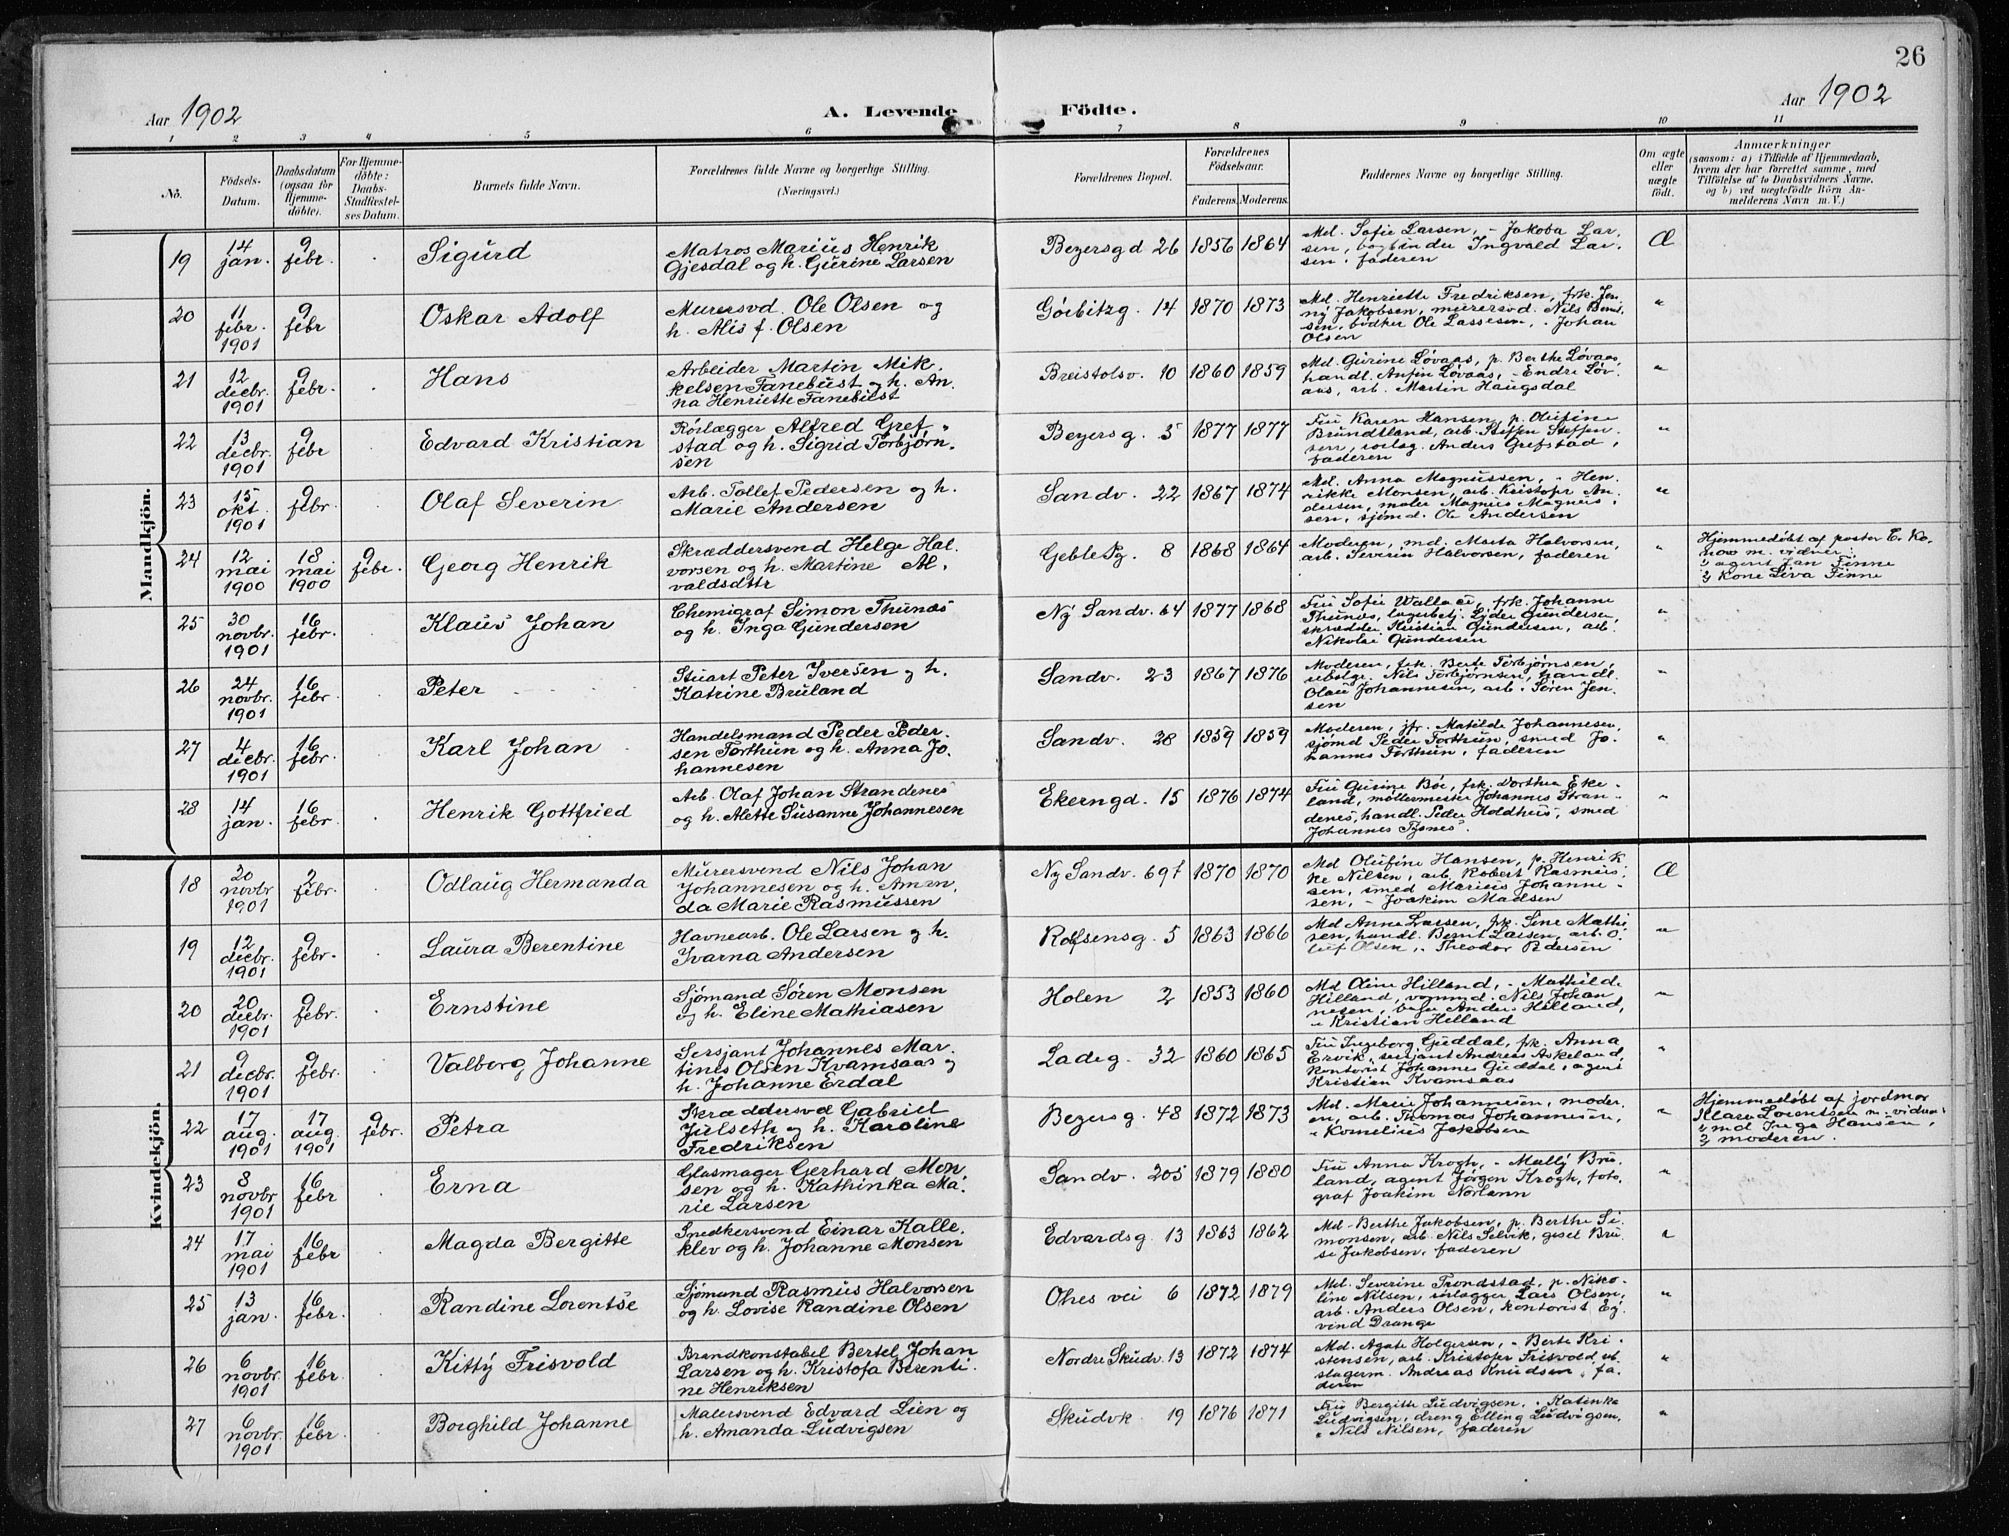 26
Aar 1902 A. Levende Födte. Aar 1902
1 2 3 4 5 6 7 8 9 10 11
No.
Födsels-
Datum.
Daabsdatum
(ogsaa for
Hjemme-
döbte).
For Hjemme-
döbte:
Daabs-
Stadfæstel-
ses Datum.
Barnets fulde Navn.
Forældrenes fulde Navne og borgerlige Stilling.
(Næringsvei.)
Forældrenes Bopæl.
Forældrenes
Födselsaar.
Faderens. Moderens.
Faddernes Navne og borgerlige Stilling.
Om ægte
eller
uægte
født.
Anmærkninger
(saasom: a) i Tilfælde af Hjemmedaab,
hvem der har forrettet samme, med
Tilföielse af to Daabsvidners Navne,
og b) ved uægtefödte Börn An-
melderens Navn m. V.)
Mandkjön.
19
14
jan.
9
febr.
Sigurd
Matros Marius Henrik
Gjesdal og h. Gurine Larsen
Bezersgd 26 1856 1864
Md. Sofie Larsen, - Jakoba Lar-
sen, bogbinder Ingvald Lar-
sen, faderen
Æ
20
11
febr.
1901
9
febr
Oskar Adolf
Murersvd. Ole Olsen og
h. Alis f. Olsen
Görbitzg. 14 1870 1873
Md. Henriette Fredriksen, frk. Jen-
ny Jakobsen, murersvd. Nils Bernt-
sen, bødker Ole Lassesen, - Johan
Olsen
"
21
12
decbr.
1901
9
febr.
Hans
Arbeider Martin Mik-
kelsen Tanebust og h. An-
na Henriette Tanebust
Breistolsv. 10 1860 1859
Md. Gurine Løvaas, p. Berthe Løvaas,
handl. Anfin Løvaas, - Endre Løv-
aas, arb. Martin Haugsdal
"
22
13
decbr.
1901
9
febr
Edvard Kristian
Rörlægger Alfred Gref-
stad og h. Sigrid Torbjørn-
sen
Bezersg. 5 1877 1877
Fru Karen Hansen, p. Olufine
Brundtland, arb. Steffen Steffen-
sen, rörlæg. Anders Grefstad,
faderen
"
23
15
okt.
1901
9
febr.
Olaf Severin
Arb. Tollef Pedersen og h.
Marie Andersen
Sandv. 22 1867 1874
Md. Anna Magnussen, - Hen-
rikke Monsen, arb. Kristofer An-
dersen, maler Magnus Magnus-
sen, sjømd. Ole Andersen
"
24
12
mai
1900
18
mai
1900
9
febr.
Georg Henrik
Skræddersvend Helge Hal-
vorsen og h. Martine Al-
valdsdttr
Geble Pg. 8 1868 1864
Moderen, md. Marta Halvorsen,
arb. Severin Halvorsen, faderen
"
Hjemmedøbt af pastor C. Ko-
now m. vidner:
1) agent Jan Finne
2) Kone Liva Finne
25
30
novbr.
1901
16
febr.
Klaus Johan
Chemigraf Simon Thunæs
og h. Inga Gundersen
Ny Sandv. 64 1877 1868
Fru Sofie Wallace, frk. Johanne
Thunæs, lagerbetj. Lyder Gundersen,
skrædder Kristian Gundersen, arb.
Nikolai Gundersen
"
26
24
novbr.
1901
16
febr.
Peter
Stuart Peter Iversen og h.
Katrine Bruland
Sandv. 23 1867 1876
Moderen, frk. Berte Torbjørnsen,
Nils Torbjørnsen, handl.
Olai Johannesen, arb. Søren Jen-
sen
"
27
4
decbr.
1901
16
febr.
Karl Johan
Handelsmand Peder Peder-
sen Torthun og h. Anna Jo-
hannesen
Sandv. 28 1859 1859
Moderen, jfr. Matilde Johannesen,
sjømd Peder Torthun, smed Jo-
hannes Torthun, faderen
"
28
14
jan.
16
febr.
Henrik Gottfried
Arb. Olaf Johan Strandenes
og h. Alette Susanne Johannesen
Ekerngd. 15 1876 1874
Fru Gurine Bøe, frk. Dorthea Eke-
land, møllermester Johannes Stran-
denes, handl. Peder Holdhus, smed
Johannes Tysnes.
"
Kvindekjön.
18
20
novbr
1901
2
febr.
Odlaug Hermanda
Murersvend Nils Johan
Johannesen og h. Aman-
da Marie Rasmussen
Ny Sandv. 69f 1870 1870
Md Olufine Hansen, p. Henrik-
ke Nilsen, arb. Robert Rasmus-
sen, smed Marius Johanne-
sen, - Joakim Madsen
Æ
19
12
decbr.
1901
9
febr.
Laura Berentine
Havnearb. Ole Larsen og h.
Ivarna Andersen
Rolfsensg. 5 1863 1866
Md Anne Larsen, frk. Sine Mathi-
sen, handl. Bernt Larsen, arb. O-
luf Olsen, - Theodor Pedersen
"
20
20
decbr.
1901
9
febr.
Ernstine
Sjømand Søren Monsen
og h. Eline Mathiasen
Holen 2 1853 1860
Md Oline Hilland, - Mathilde
Hilland, vognmd. Nils Johan-
nesen, bager Anders Hilland,
" Kristian Hilland
"
21
9
decbr.
1901
9
febr.
Valborg Johanne
Sersjant Johannes Mar-
tines Olsen Kvamsaas og
h. Johanne Erdal
Ladeg. 32 1860 1865
Fru Ingeborg Guddal, frk. Anna
Ervik, sersjant Andreas Askeland,
kontorist Johannes Guddal, agent
Kristian Kvamsaas
"
22
17
aug.
1901
17
aug.
1901
9
febr.
Petra
Skræddersvd Gabriel
Julseth og h. Karoline
Fredriksen
Bezersg. 48 1872 1873
Md. Marie Johannesen, moder-
en, arb. Thomas Johannesen,
" Kornelius Jakobsen
"
Hjemmedøbt af jordmor
Klara Lorentsen m. vidner:
1) md Inga Hansen,
2) moderen.
23
8
novbr
1901
16
febr
Erna
Glasmager Gerhard Mon-
sen og h. Kathinka Ma-
rie Larsen
Sandv. 205 1879 1880
Fru Anna Krogh, - Mally Bru-
land, agent Jørgen Krogh, foto-
graf Joakim Norlann
"
24
17
mai
1901
16
febr
Magda Bergitte
Snedkersvend Einar Kalle-
klev og h. Johanne Monsen
Edvardsg. 13 1863 1862
Md. Berthe Jakobsen, p. Berthe Si-
monsen, arb. Nils Selvik, gesel Bru-
se Jakobsen, faderen
"
25
13
jan.
16
febr.
Randine Lorentse
Sjømand Rasmus Halvorsen
og h. Lovise Randine Olsen
Ohes vei 6 1872 1879
Md. Severine Trondstad, p. Niko-
line Nilsen, rørlægger Lars Olsen,
arb. Anders Olsen, kontorist Ey-
vind Drange
"
26
6
novbr.
1901
16
febr.
Kitty Frisvold
Brandkonstabel Bertel Johan
Larsen og h. Kristofa Berenti-
ne Henriksen
Nordre Skudv. 13 1872 1874
Md. Agate Holgersen, - Berte Kri-
stensen, arb. Kristofer Frisvold, ud-
slagerm. Andreas Knudsen, fa-
deren
"
27
6
novbr.
1901
16
febr
Borghild Johanne
Malersvend Edvard Lien og
h. Amanda Ludvigsen
Skudvk 19 1876 1871
Fru Bergitte Ludvigsen, - Katinka
Ludvigsen, dreng Elling Ludvigsen,
" Nils Nilsen, faderen
"